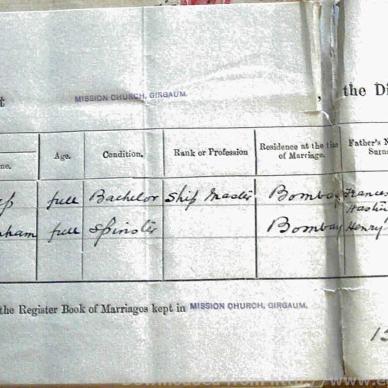 MISSION CHURCH, GIRGAUM. , the Di
ne. Age. Condition. Rank or Profession Residence at the time of Marriage. Father's N
Surn
full Bachelor Ship Master Bombay Frances
Haste
nham full Spinster Bombay Henry
the Register Book of Marriages kept in MISSION CHURCH, GIRGAUM.